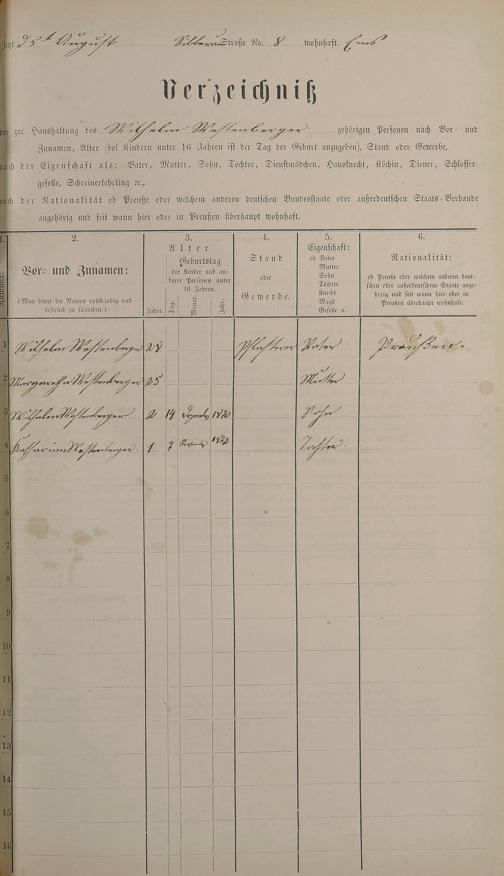 d 5t August Straße No. 8 wohnhaft. Ems
Verzeichniß
der zur Haushaltung des Wilhelm Westenberger gehörigen Personen nach Vor- und
Zunamen, Alter (bei Kindern unter 16 Jahren ist der Tag der Geburt anzugeben), Stand oder Gewerbe,
nach der Eigenschaft als: Vater, Mutter, Sohn, Tochter, Dienstmädchen, Hausknecht, Köchin, Diener, Schlosser-
geselle, Schreinerlehrling ꝛc.,
nach der Nationalität ob Preuße oder welchem anderen deutschen Bundesstaate oder außerdeutschen Staats-Verbande
angehörig und seit wann hier oder in Preußen überhaupt wohnhaft.
1. 2. 3. 4. 5. 6.
Nummer.
Vor- und Zunamen:
(Man bittet die Namen vollständig und
leserlich zu schreiben.)
Alter
Geburtstag
der Kinder und an-
derer Personen unter
16 Jahren.
Jahre. Tag. Monat. Jahr.
Stand
oder
Gewerbe.
Eigenschaft:
ob Vater
Mutter
Sohn
Tochter
Knecht
Magd
Geselle ꝛc.
Nationalität:
ob Preuße oder welchem anderen deut-
schen oder außerdeutschen Staate ange-
hörig und seit wann hier oder in
Preußen überhaupt wohnhaft.
1 Wilhelm Westenberger 28 Pflasterer Vater Preußen.
2 Margaretha Westenberger 25 Mutter
3 Wilhelm Westenberger 2 14 1870 Sohn
4 Katharina Westenberger 1 7 1872 Tochter
5
6
7
8
9
10
11
12
13
14
15
16